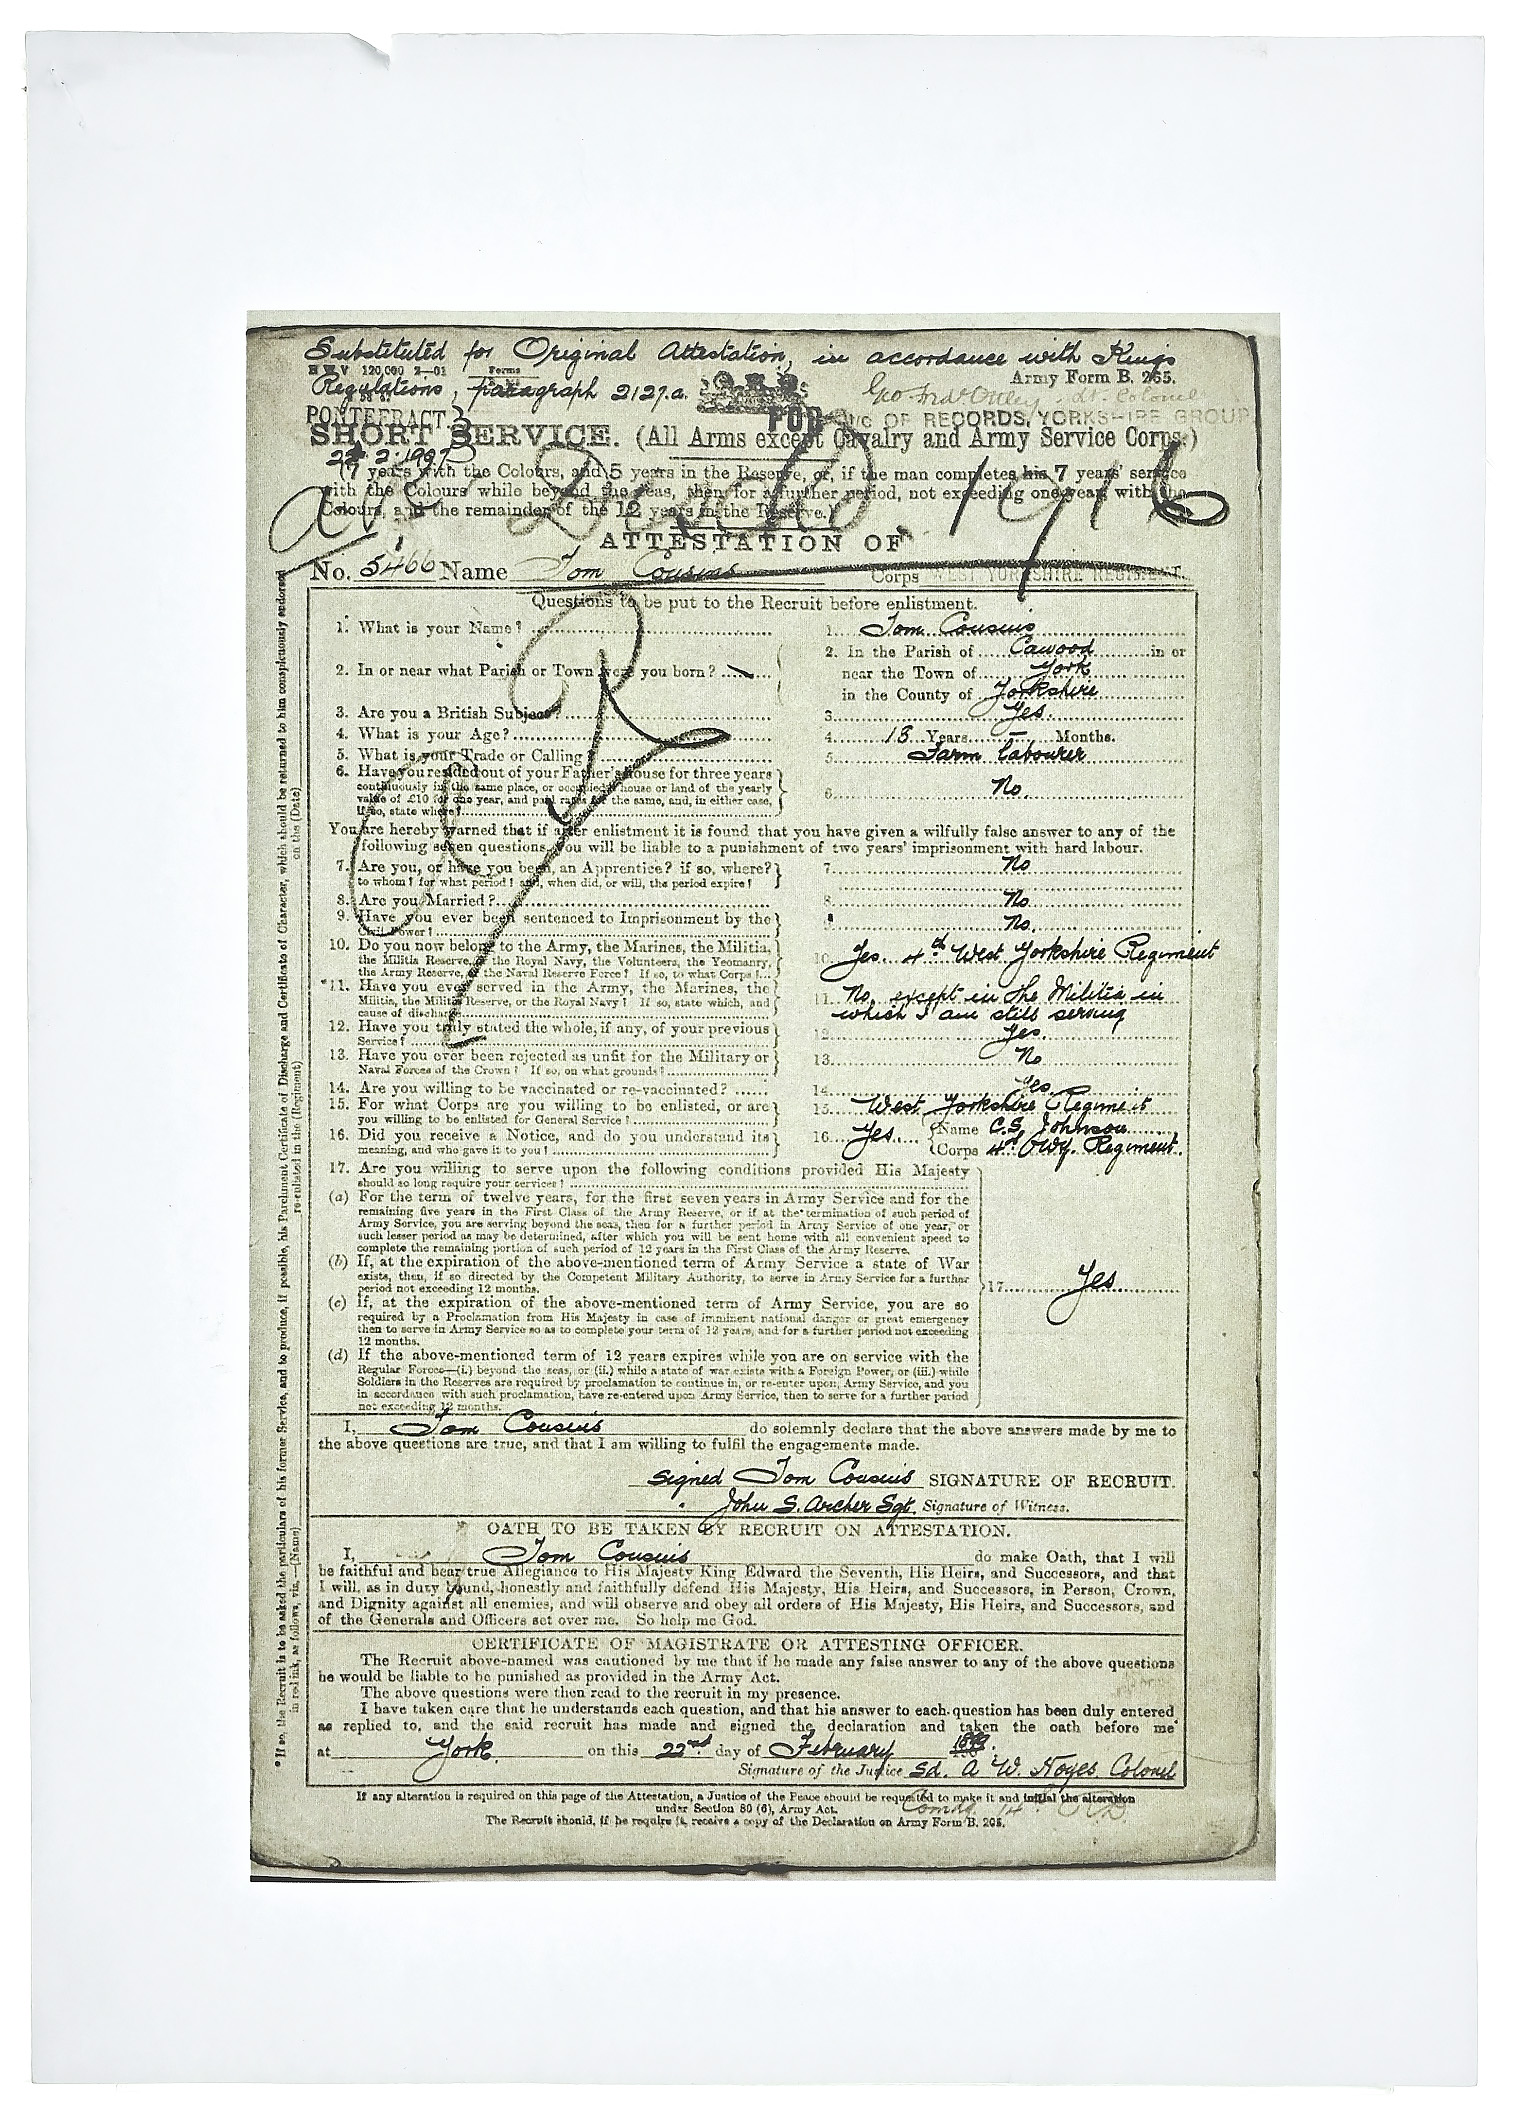 Substituted for Original Attestation, in accordance with Kings
H W V 120,000 2—01 Forms
Army Form B. 265.
Regulations, paragraph 2127.a.
Lt. Colonel
PONTEFRACT. FOR OF RECORDS, YORKSHIRE GROUP
SHORT SERVICE. (All Arms except Cavalry and Army Service Corps.)
(7 years with the Colours, and 5 years in the Reserve, or, if the man completes his 7 years' service
with the Colours while beyond the seas, then for a further period, not exceeding one year, with the
Colours, and the remainder of the 12 years in the Reserve.)
Dead 1916
ATTESTATION OF
No. 5466 Name Tom Cousins Corps WEST YORKSHIRE REGIMENT.
Questions to be put to the Recruit before enlistment.
1. What is your Name? 1. Tom Cousins
2. In or near what Parish or Town were you born? 2. In the Parish of Cawood in or
near the Town of York
in the County of Yorkshire
3. Are you a British Subject? 3. Yes.
4. What is your Age? 4. 18 Years — Months.
5. What is your Trade or Calling? 5. Farm Labourer
6. Have you resided out of your Father's house for three years
continuously in the same place, or occupied a house or land of the yearly
value of £10 for one year, and paid rates for the same, and, in either case,
if so, state where? 6. No.
You are hereby warned that if after enlistment it is found that you have given a wilfully false answer to any of the
following seven questions, you will be liable to a punishment of two years' imprisonment with hard labour.
7. Are you, or have you been, an Apprentice? if so, where? 7. No
to whom? for what period? and, when did, or will, the period expire?
8. Are you Married? 8. No
9. Have you ever been sentenced to Imprisonment by the 9. No.
Civil Power?
10. Do you now belong to the Army, the Marines, the Militia, 10. Yes. 4th West Yorkshire Regiment
the Militia Reserve, or the Royal Navy, the Volunteers, the Yeomanry,
the Army Reserve, or the Naval Reserve Force? If so, to what Corps?
*11. Have you ever served in the Army, the Marines, the 11. No, except in the Militia in
Militia, the Militia Reserve, or the Royal Navy? If so, state which, and which I am still serving
cause of discharge
12. Have you truly stated the whole, if any, of your previous 12. Yes.
Service?
13. Have you ever been rejected as unfit for the Military or 13. No
Naval Forces of the Crown? If so, on what grounds?
14. Are you willing to be vaccinated or re-vaccinated? 14. Yes.
15. For what Corps are you willing to be enlisted, or are 15. West Yorkshire Regiment
you willing to be enlisted for General Service?
16. Did you receive a Notice, and do you understand its 16. Yes Name C.S. Johnson
meaning, and who gave it to you? Corps 4th PWO. Regiment.
17. Are you willing to serve upon the following conditions provided His Majesty
should so long require your services?
(a) For the term of twelve years, for the first seven years in Army Service and for the
remaining five years in the First Class of the Army Reserve, or if at the termination of such period of
Army Service, you are serving beyond the seas, then for a further period in Army Service of one year, or
such lesser period as may be determined, after which you will be sent home with all convenient speed to
complete the remaining portion of such period of 12 years in the First Class of the Army Reserve.
(b) If, at the expiration of the above-mentioned term of Army Service a state of War
exists, then, if so directed by the Competent Military Authority, to serve in Army Service for a further
period not exceeding 12 months. 17. Yes
(c) If, at the expiration of the above-mentioned term of Army Service, you are so
required by a Proclamation from His Majesty in case of imminent national danger or great emergency
then to serve in Army Service so as to complete your term of 12 years, and for a further period not exceeding
12 months.
(d) If the above-mentioned term of 12 years expires while you are on service with the
Regular Forces—(i.) beyond the seas, or (ii.) while a state of war exists with a Foreign Power, or (iii.) while
Soldiers in the Reserves are required by proclamation to continue in, or re-enter upon, Army Service, and you
in accordance with such proclamation, have re-entered upon Army Service, then to serve for a further period
not exceeding 12 months.
I, Tom Cousins do solemnly declare that the above answers made by me to
the above questions are true, and that I am willing to fulfil the engagements made.
Signed Tom Cousins SIGNATURE OF RECRUIT.
" John S. Archer Sgt. Signature of Witness.
OATH TO BE TAKEN BY RECRUIT ON ATTESTATION.
I, Tom Cousins do make Oath, that I will
be faithful and bear true Allegiance to His Majesty King Edward the Seventh, His Heirs, and Successors, and that
I will, as in duty bound, honestly and faithfully defend His Majesty, His Heirs, and Successors, in Person, Crown,
and Dignity against all enemies, and will observe and obey all orders of His Majesty, His Heirs, and Successors, and
of the Generals and Officers set over me. So help me God.
CERTIFICATE OF MAGISTRATE OR ATTESTING OFFICER.
The Recruit above-named was cautioned by me that if he made any false answer to any of the above questions
he would be liable to be punished as provided in the Army Act.
The above questions were then read to the recruit in my presence.
I have taken care that he understands each question, and that his answer to each question has been duly entered
as replied to, and the said recruit has made and signed the declaration and taken the oath before me
at York. on this 22nd day of February 1899.
Signature of the Justice Sd. A W. Noyes Colonel
If any alteration is required on this page of the Attestation, a Justice of the Peace should be requested to make it and initial the alteration
under Section 80 (6), Army Act. Comdg. 14th R.D.
The Recruit should, if he require it, receive a copy of the Declaration on Army Form B. 265.
*If so, the Recruit is to be asked the particulars of his former Service, and to produce, if possible, his Parchment Certificate of Discharge and Certificate of Character, which should be returned to him conspicuously endorsed
in red ink, as follows, viz.—(Name) re-enlisted in the (Regiment) on the (Date)